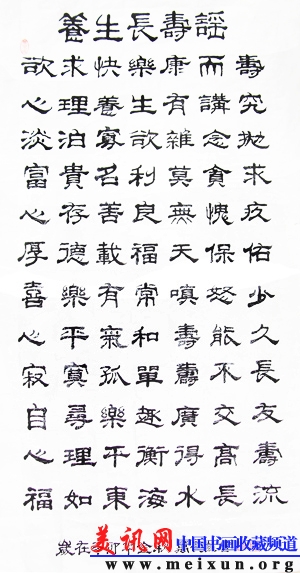 養生長壽謠
欲求快樂康而壽
心理養生有講究
淡泊寡欲雜念拋
富貴名利莫貪求
心存善良無愧疚
厚德載福天保佑
喜樂有常嗔怒少
心平氣和壽能久
寂寞孤單壽不長
自尋樂趣廣交友
心理平衡得高壽
福如東海水長流
歲在
美讯网 中国书画收藏频道
www.meixun.org